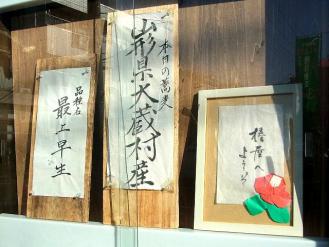 本日の蕎麦
山形県大蔵村産
品種名
最上早生
椿屋へ
ようこそ